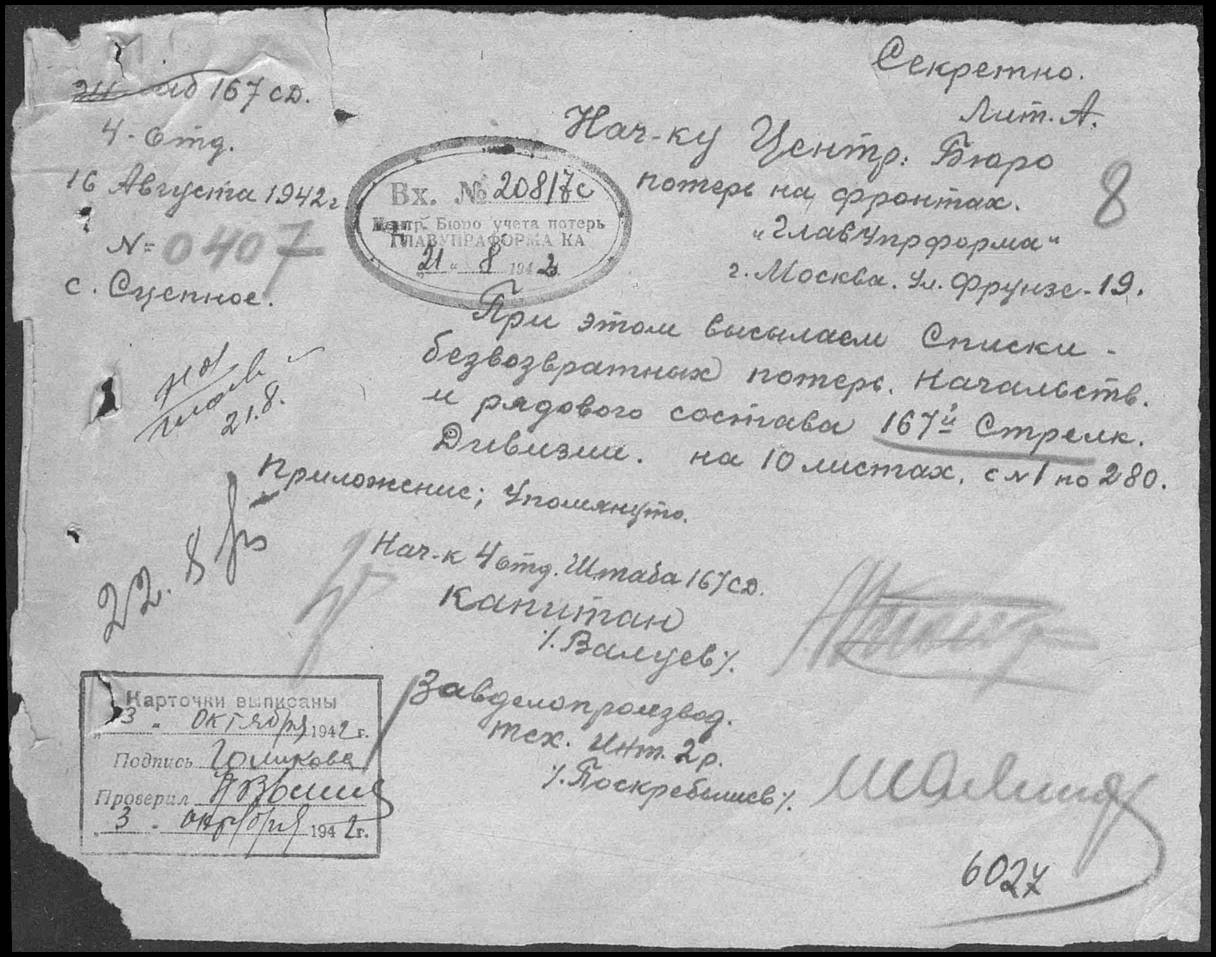 167 сд.
4-Отд.
16 Августа 1942 г
№ 0407
с. Сцепное.
Секретно.
Лит. А.
Нач-ку Центр. Бюро
потерь на фронтах.
„Главупрформа"
г. Москва. Ул. Фрунзе-19.
8
Вх. № 20817с
Центр. Бюро учета потерь
ГЛАВУПРАФОРМА КА
„21 " 8 1942
При этом высылаем Списки -
безвозвратных потерь. Начальств.
и рядового состава 167й Стрелк.
Дивизии. на 10 листах, с №1 по 280.
Приложение; Упомянуто.
21.8.
22. 8
Нач-к 4 отд. Штаба 167 сд.
Капитан
/. Валуев/.
Завделопроизвод.
тех. Инт. 2 р.
/. Поскребышев/.
Карточки выписаны
„3 " октября 1942 г.
Подпись Голикова
Проверил
„3 " октября 1942 г.
6027